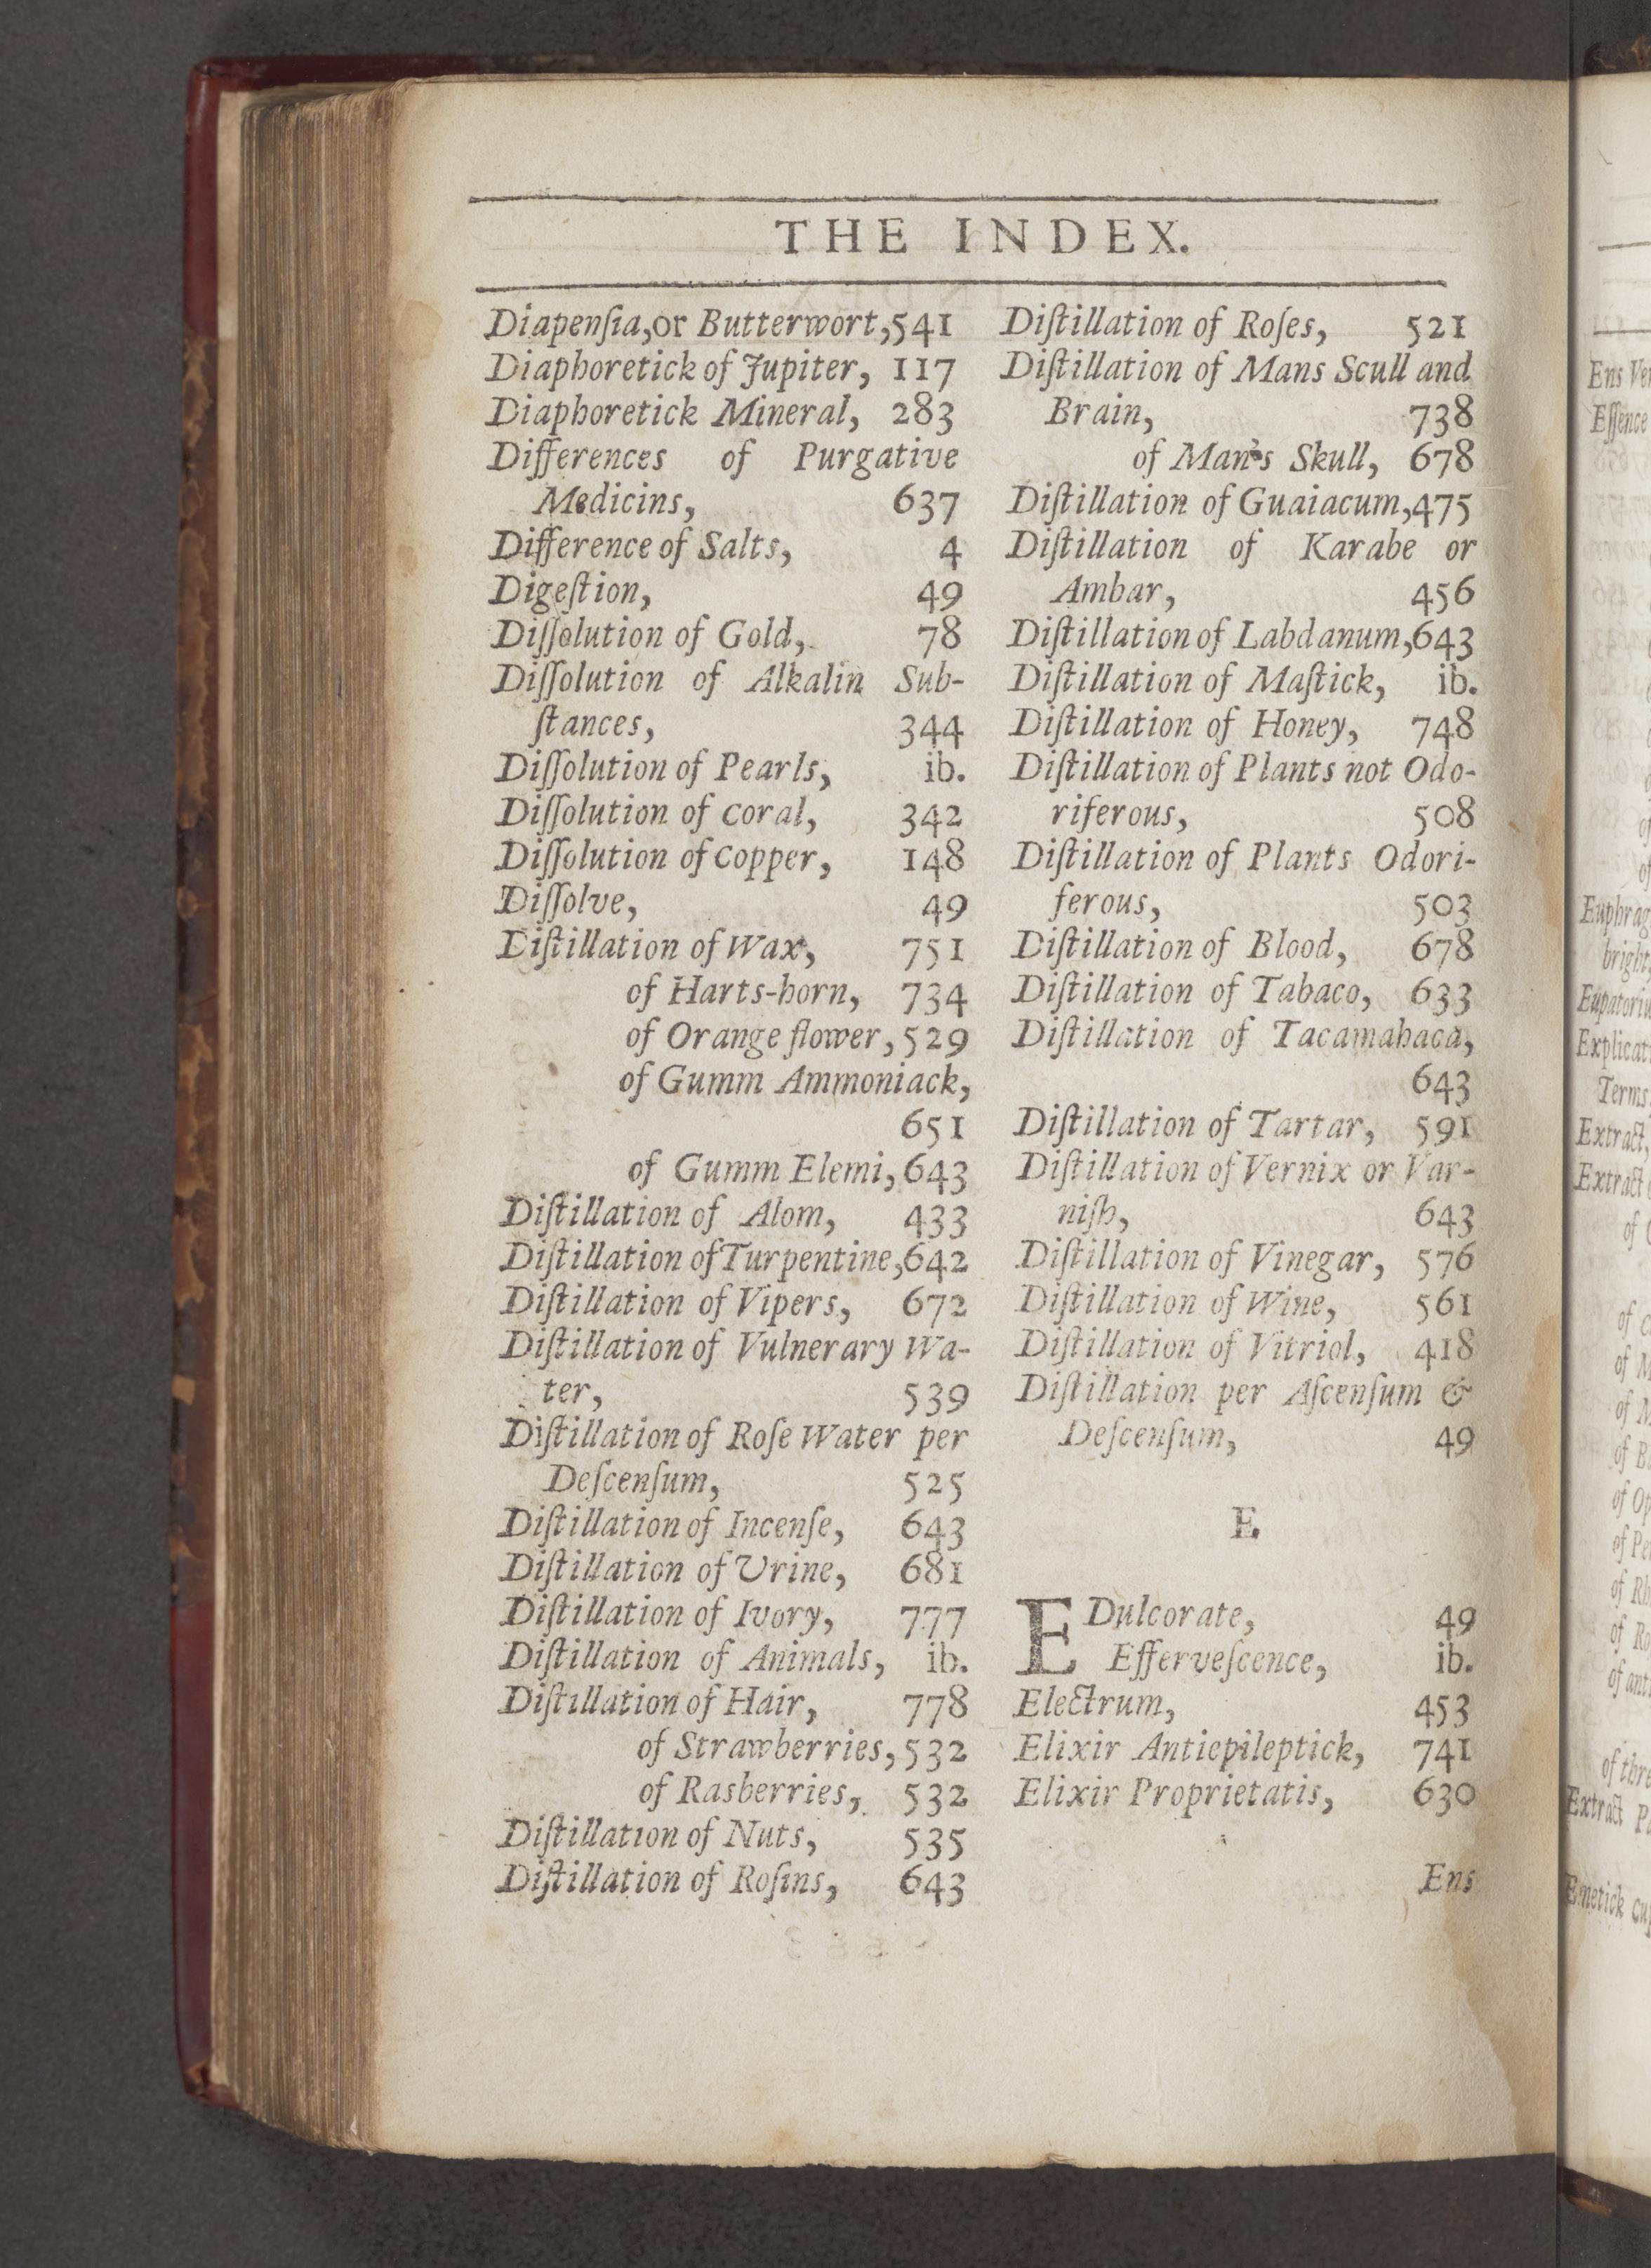 THE INDEX.
Diapenſia,or Butterwort,541
Diaphoretick of Jupiter, 117
Diaphoretick Mineral, 283
Differences of Purgative
Medicins, 637
Difference of Salts, 4
Digeſtion, 49
Diſſolution of Gold, 78
Diſſolution of Alkalin Sub-
ſtances, 344
Diſſolution of Pearls, ib.
Diſſolution of Coral, 342
Diſſolution of Copper, 148
Diſſolve, 49
Diſtillation of Wax, 751
of Harts-horn, 734
of Orange flower, 529
of Gumm Ammoniack,
651
of Gumm Elemi, 643
Diſtillation of Alom, 433
Diſtillation of Turpentine,642
Diſtillation of Vipers, 672
Diſtillation of Vulnerary Wa-
ter, 539
Diſtillation of Roſe Water per
Deſcenſum, 525
Diſtillation of Incenſe, 643
Diſtillation of Urine, 681
Diſtillation of Ivory, 777
Diſtillation of Animals, ib.
Diſtillation of Hair, 778
of Strawberries, 532
of Rasberries, 532
Diſtillation of Nuts, 535
Diſtillation of Roſins, 643
Diſtillation of Roſes, 521
Diſtillation of Mans Scull and
Brain, 738
of Man's Skull, 678
Diſtillation of Guaiacum,475
Diſtillation of Karabe or
Ambar, 456
Diſtillation of Labdanum,643
Diſtillation of Maſtick, ib.
Diſtillation of Honey, 748
Diſtillation of Plants not Odo-
riferous, 508
Diſtillation of Plants Odori-
ferous, 503
Diſtillation of Blood, 678
Diſtillation of Tabaco, 633
Diſtillation of Tacamahaca,
643
Diſtillation of Tartar, 591
Diſtillation of Vernix or Var-
niſh, 643
Diſtillation of Vinegar, 576
Diſtillation of Wine, 561
Diſtillation of Vitriol, 418
Diſtillation per Aſcenſum &
Deſcenſum, 49
E
EDulcorate, 49
Efferveſcence, ib.
Electrum, 453
Elixir Antiepileptick, 741
Elixir Proprietatis, 630
Ens
Ens
Eſſence
Terms
Extract,
Extract
Extract